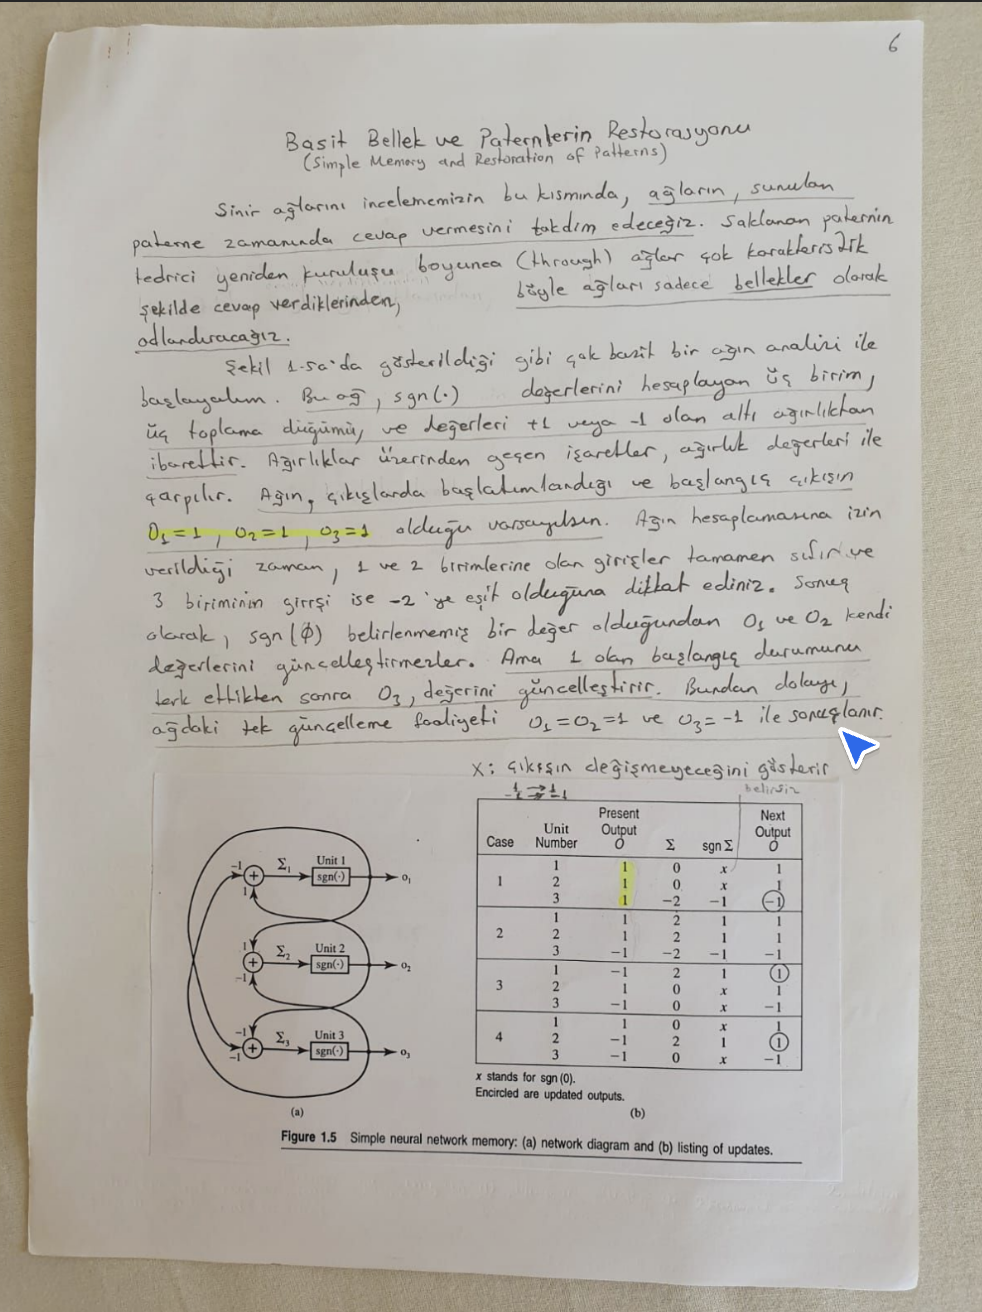 6
Basit Bellek ve Paternlerin Restorasyonu
(Simple Memory and Restoration of Patterns)
Sinir ağlarını incelememizin bu kısmında, ağların, sunulan
paterne zamanında cevap vermesini takdim edeceğiz. Saklanan paternin
tedrici yeniden kuruluşu boyunca (through) ağlar çok karakteristik
şekilde cevap verdiklerinden, böyle ağları sadece bellekler olarak
adlandıracağız.
Şekil 1.5a'da gösterildiği gibi çok basit bir ağın analizi ile
başlayalım. Bu ağ, sgn(·) değerlerini hesaplayan üç birim,
üç toplama düğümü, ve değerleri +1 veya -1 olan altı ağırlıktan
ibarettir. Ağırlıklar üzerinden geçen işaretler, ağırlık değerleri ile
çarpılır. Ağın, çıkışlarda başlatımlandığı ve başlangıç çıkışın
O1=1, O2=1, O3=1 olduğu varsayılsın. Ağın hesaplamasına izin
verildiği zaman, 1 ve 2 birimlerine olan girişler tamamen sıfır ve
3 biriminin girişi ise -2'ye eşit olduğuna dikkat ediniz. Sonuç
olarak, sgn(ϕ) belirlenmemiş bir değer olduğundan O1 ve O2 kendi
değerlerini güncelleştirmezler. Ama 1 olan başlangıç durumunu
terk ettikten sonra O3, değerini güncelleştirir. Bundan dolayı,
ağdaki tek güncelleme faaliyeti O1=O2=1 ve O3=-1 ile sonuçlanır.
x: çıkışın değişmeyeceğini gösterir
belirsiz
-1 Σ1 Unit 1
+ sgn(·) o1
1
1 Σ2 Unit 2
+ sgn(·) o2
-1
-1 Σ3 Unit 3
+ sgn(·) o3
-1
(a)
Case Unit Number Present Output O Σ sgn Σ Next Output O
1 1 1 0 x 1
2 1 0 x 1
3 1 -2 -1 -1
2 1 1 2 1 1
2 1 2 1 1
3 -1 -2 -1 -1
3 1 -1 2 1 1
2 1 0 x 1
3 -1 0 x -1
4 1 1 0 x 1
2 -1 2 1 1
3 -1 0 x -1
x stands for sgn (0).
Encircled are updated outputs.
(b)
Figure 1.5 Simple neural network memory: (a) network diagram and (b) listing of updates.